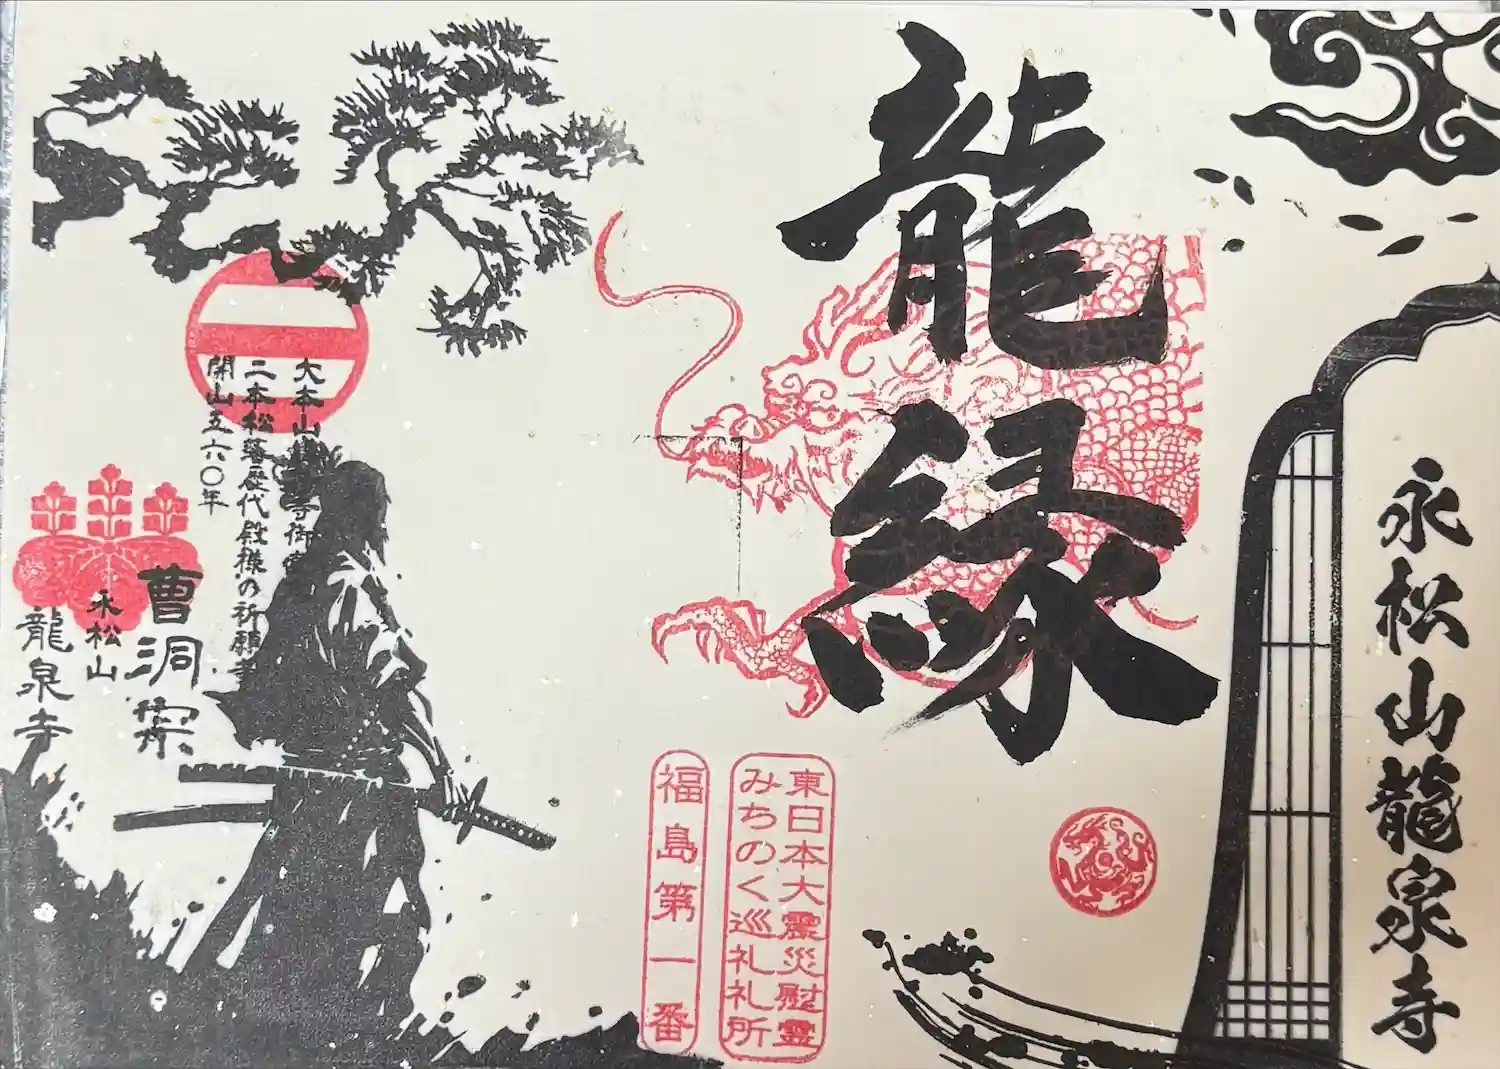 龍縁
永松山龍泉寺
東日本大震災慰霊
みちのく巡礼札所
福島第一番
大本山總持寺御
二本松藩歴代殿様の祈願寺
開山五六〇年
曹洞宗
永松山
龍泉寺